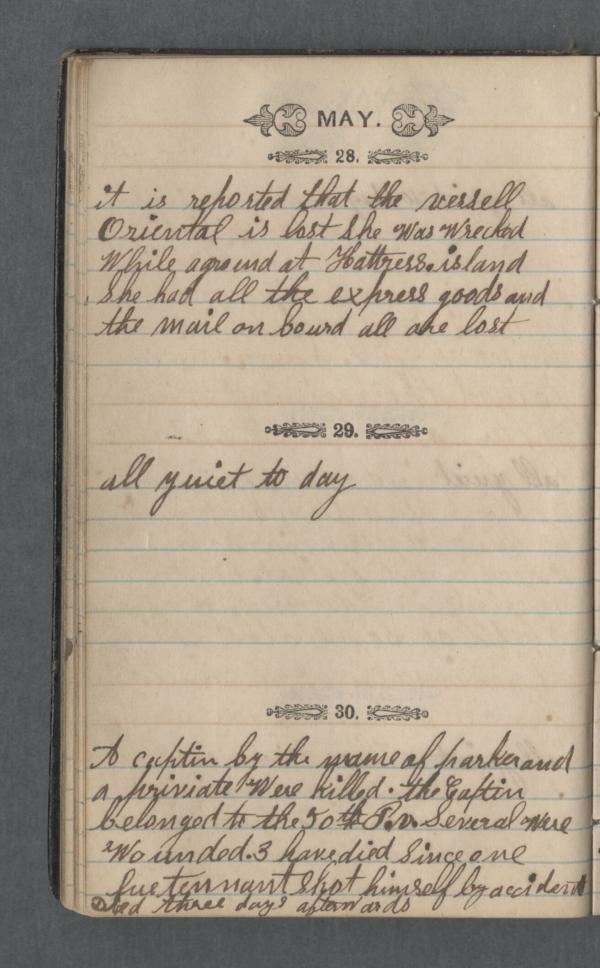 MAY.
28.
it is reported that the vessell
Oriental is lost she Was Wrecked
While aground at Hattress island
She had all the express goods and
the mail on bourd all are lost
29.
all quiet to day
30.
A captin by the name of parker and
a priviate Were killed. the Captin
belonged to the 50th P.v. Several Were
Wounded. 3 have died Since one
luetennant shot himself by accident
Died three days afterwards